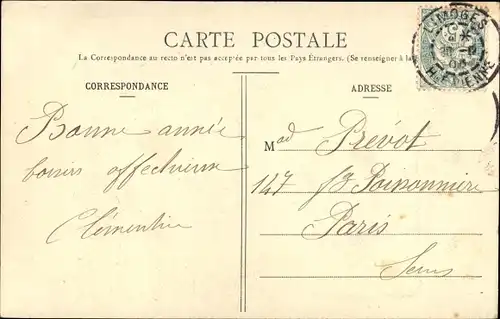 LIMOGES
Hte VIENNE
CARTE POSTALE
La Correspondance au recto n'est pas acceptée par tous les Pays Étrangers. (Se renseigner à la
CORRESPONDANCE
ADRESSE
Bonne année
Clémentine
Mad Prévot
147 fg Poissonnière
Paris